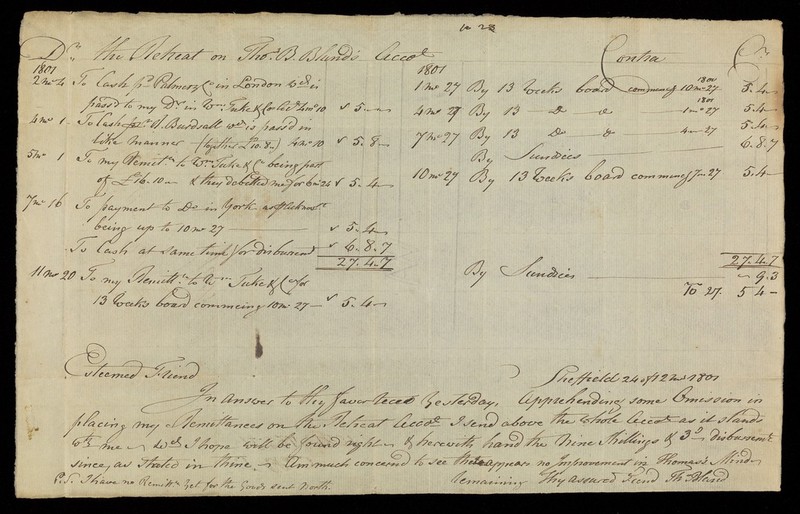 Dr. The Retreat on Thos. B. Bland's Accot.
1801
2 mo 4 To Cash pr Palmer & Co in London wch is
passd to my Dr. in Wm. Tuke & Co 4mo 10 5. -
4 mo 1 To Cash W. Burdsall wch is pass'd in
like manner (together £10.8-) 4mo 10 5. 8 -
5mo 1 To my Remitce to Wm Tuke & Co being part
of £16.10 - & they debited me for 6mo 24 5. 4 -
7 mo 16 To payment to Do in York
being up to 10 mo 27 5. 4 -
To Cash at same time for disbursemt 6. 8. 7
27. 4. 7
11 mo 20 To my Remittce to Wm Tuke & Co for
13 Weeks board commencing 10mo 27 - 5. 4 -
Contra Cr.
1801
1 mo 27 By 13 Weeks board commencg 1800 10mo 27 5. 4 -
4 mo 27 By 13 - Do - Do - 1801 1mo 27 5. 4 -
7 mo 27 By 13 - Do - Do - 4 - 27 5. 4 -
By Sundries 6. 8. 7
10 mo 27 By 13 Weeks board commencg 7mo 27 5. 4 -
27. 4. 7
By Sundries - 9. 3
To 27. 5 4 -
Sheffield 24 of 12 mo 1801
Esteemed Friend
In answer to thy favor recd yesterday, apprehending some Omission in
placing my Remittances on the Retreat Accot. I send above the whole Accot as it stands
with me - wch I hope will be found right - & herewith hand the Nine Shillings & 3d - disbursemt
since, as stated in thine - Am much concerned to see there appears no Improvement in Thomas's Mind
Remaining Thy assured Friend Th. Bland
P.S. I have no Remittce yet for the Goods sent North.